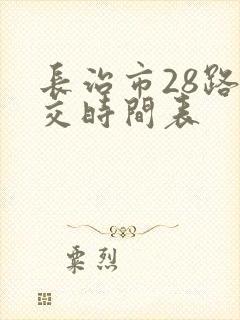 長治市28路
交時間表
粟烈